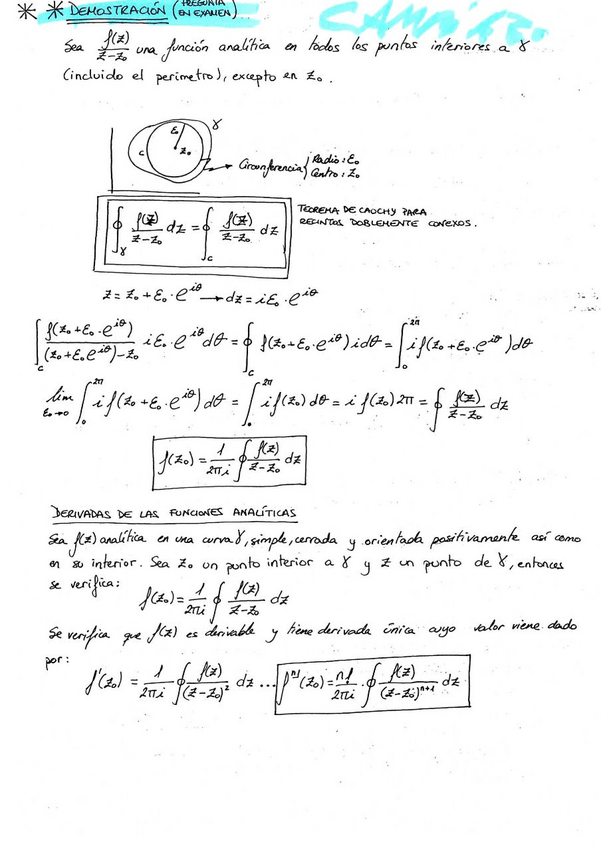 * * DEMOSTRACIÓN (PREGUNTA EN EXAMEN)
Sea f(z)/(z-z₀) una función analítica en todos los puntos interiores a γ
(incluido el perímetro), excepto en z₀.
ε₀ γ
c z₀
Circunferencia { Radio: ε₀
Centro: z₀
∮_γ f(z)/(z-z₀) dz = ∮_c f(z)/(z-z₀) dz
TEOREMA DE CAOCHY PARA
RECINTOS DOBLEMENTE CONEXOS.
z = z₀ + ε₀ · e^{iθ} → dz = iε₀ · e^{iθ}
∫_c f(z₀+ε₀·e^{iθ})/((z₀+ε₀e^{iθ})-z₀) iε₀·e^{iθ} dθ = ∮_c f(z₀+ε₀·e^{iθ}) i dθ = ∫₀^{2π} i f(z₀+ε₀·e^{iθ}) dθ
lim_{ε₀→0} ∫₀^{2π} i f(z₀+ε₀·e^{iθ}) dθ = ∫₀^{2π} i f(z₀) dθ = i f(z₀) 2π = ∮ f(z)/(z-z₀) dz
f(z₀) = 1/(2πi) ∮ f(z)/(z-z₀) dz
DERIVADAS DE LAS FUNCIONES ANALÍTICAS
Sea f(z) analítica en una curva γ, simple, cerrada y orientada positivamente así como
en su interior. Sea z₀ un punto interior a γ y z un punto de γ, entonces
se verifica:
f(z₀) = 1/(2πi) ∮ f(z)/(z-z₀) dz
Se verifica que f(z) es derivable y tiene derivada única cuyo valor viene dado
por:
f'(z₀) = 1/(2πi) ∮ f(z)/(z-z₀)² dz ... fⁿ⁾(z₀) = n!/(2πi) · ∮ f(z)/(z-z₀)^{n+1} dz